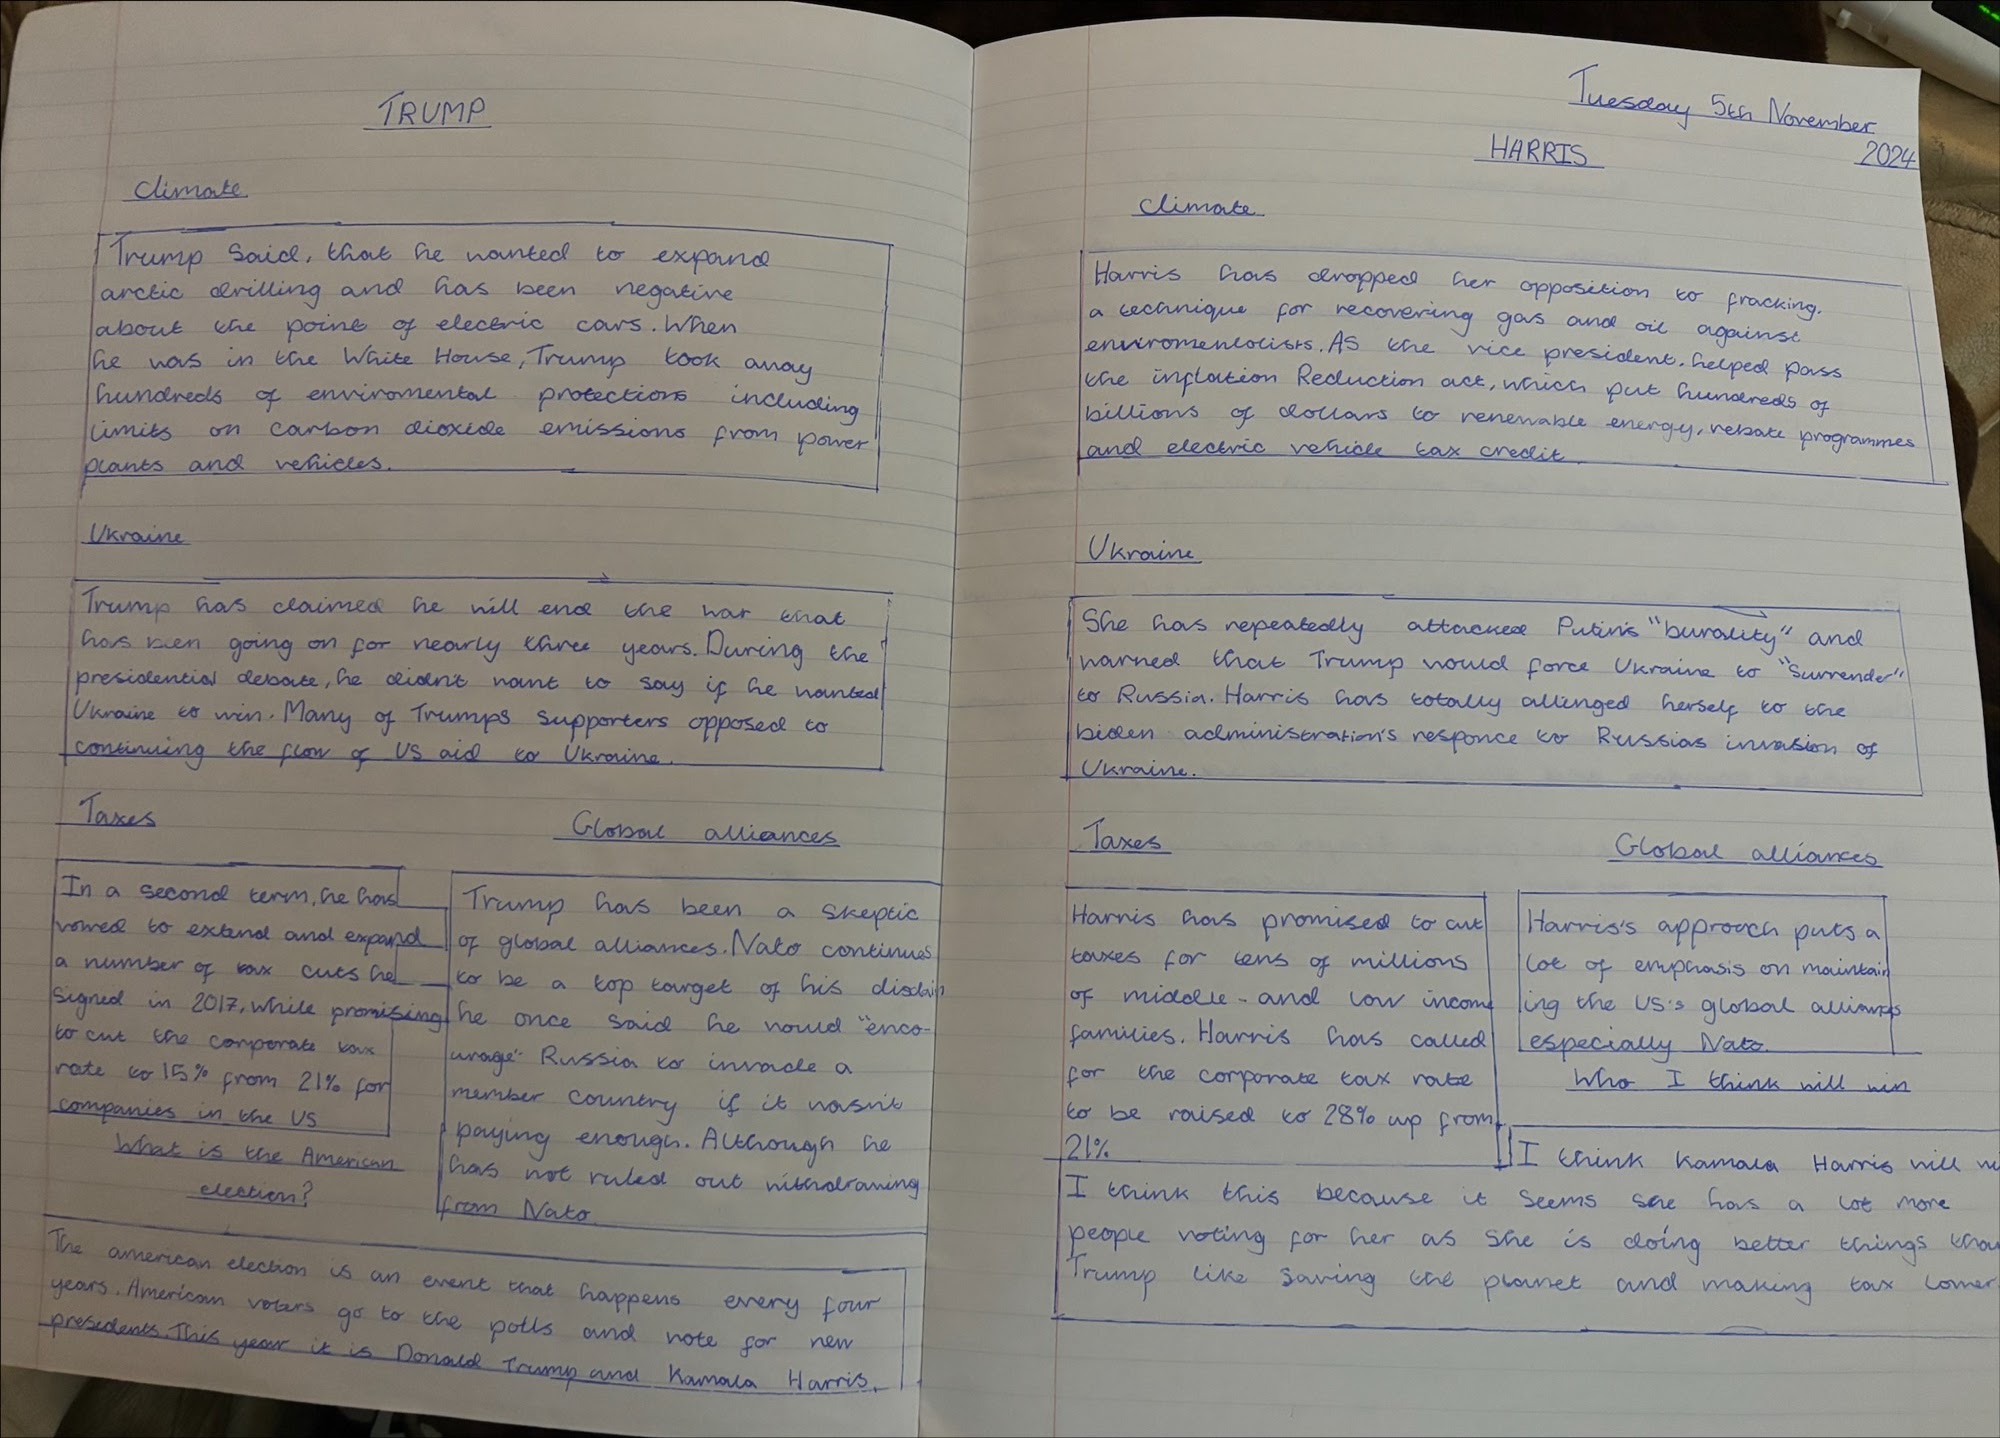 TRUMP
Climate
Trump said, that he wanted to expand
arctic drilling and has been negative
about the point of electric cars. When
he was in the White House, Trump took away
hundreds of enviromental protections including
limits on carbon dioxide emissions from power
plants and vehicles.
Ukraine
Trump has claimed he will end the war that
has been going on for nearly three years. During the
presidential debate, he didn't want to say if he wanted
Ukraine to win. Many of Trumps supporters opposed to
continuing the flow of US aid to Ukraine.
Taxes
In a second term, he has
vowed to extend and expand
a number of tax cuts he
signed in 2017, while promising
to cut the corporate tax
rate to 15% from 21% for
companies in the US
Global alliances
Trump has been a skeptic
of global alliances. Nato continues
to be a top target of his disdain
he once said he would "enco-
urage" Russia to invade a
member country if it wasn't
paying enough. Although he
has not ruled out withdrawing
from Nato.
What is the American
election?
The american election is an event that happens every four
years. American voters go to the polls and vote for new
presedents. This year it is Donald Trump and Kamala Harris.
Tuesday 5th November
2024
HARRIS
Climate
Harris has dropped her opposition to fracking.
a technique for recovering gas and oil against
enviromentolists. As the vice president, helped pass
the inflation Reduction act, which put hundreds of
billions of dollars to renewable energy, rebate programmes
and electric vehicle tax credit.
Ukraine
She has repeatedly attacked Putin's "burality" and
warned that Trump would force Ukraine to "surrender"
to Russia. Harris has totally allinged herself to the
biden administration's responce to Russias invasion of
Ukraine.
Taxes
Harris has promised to cut
taxes for tens of millions
of middle-and low income
families. Harris has called
for the corporate tax rate
to be raised to 28% up from
21%
Global alliances
Harris's approach puts a
lot of emphasis on maintain
ing the US's global alliances
especially Nato.
Who I think will win
I think Kamala Harris will
I think this because it seems she has a lot more
people voting for her as she is doing better things than
Trump like saving the planet and making tax lower